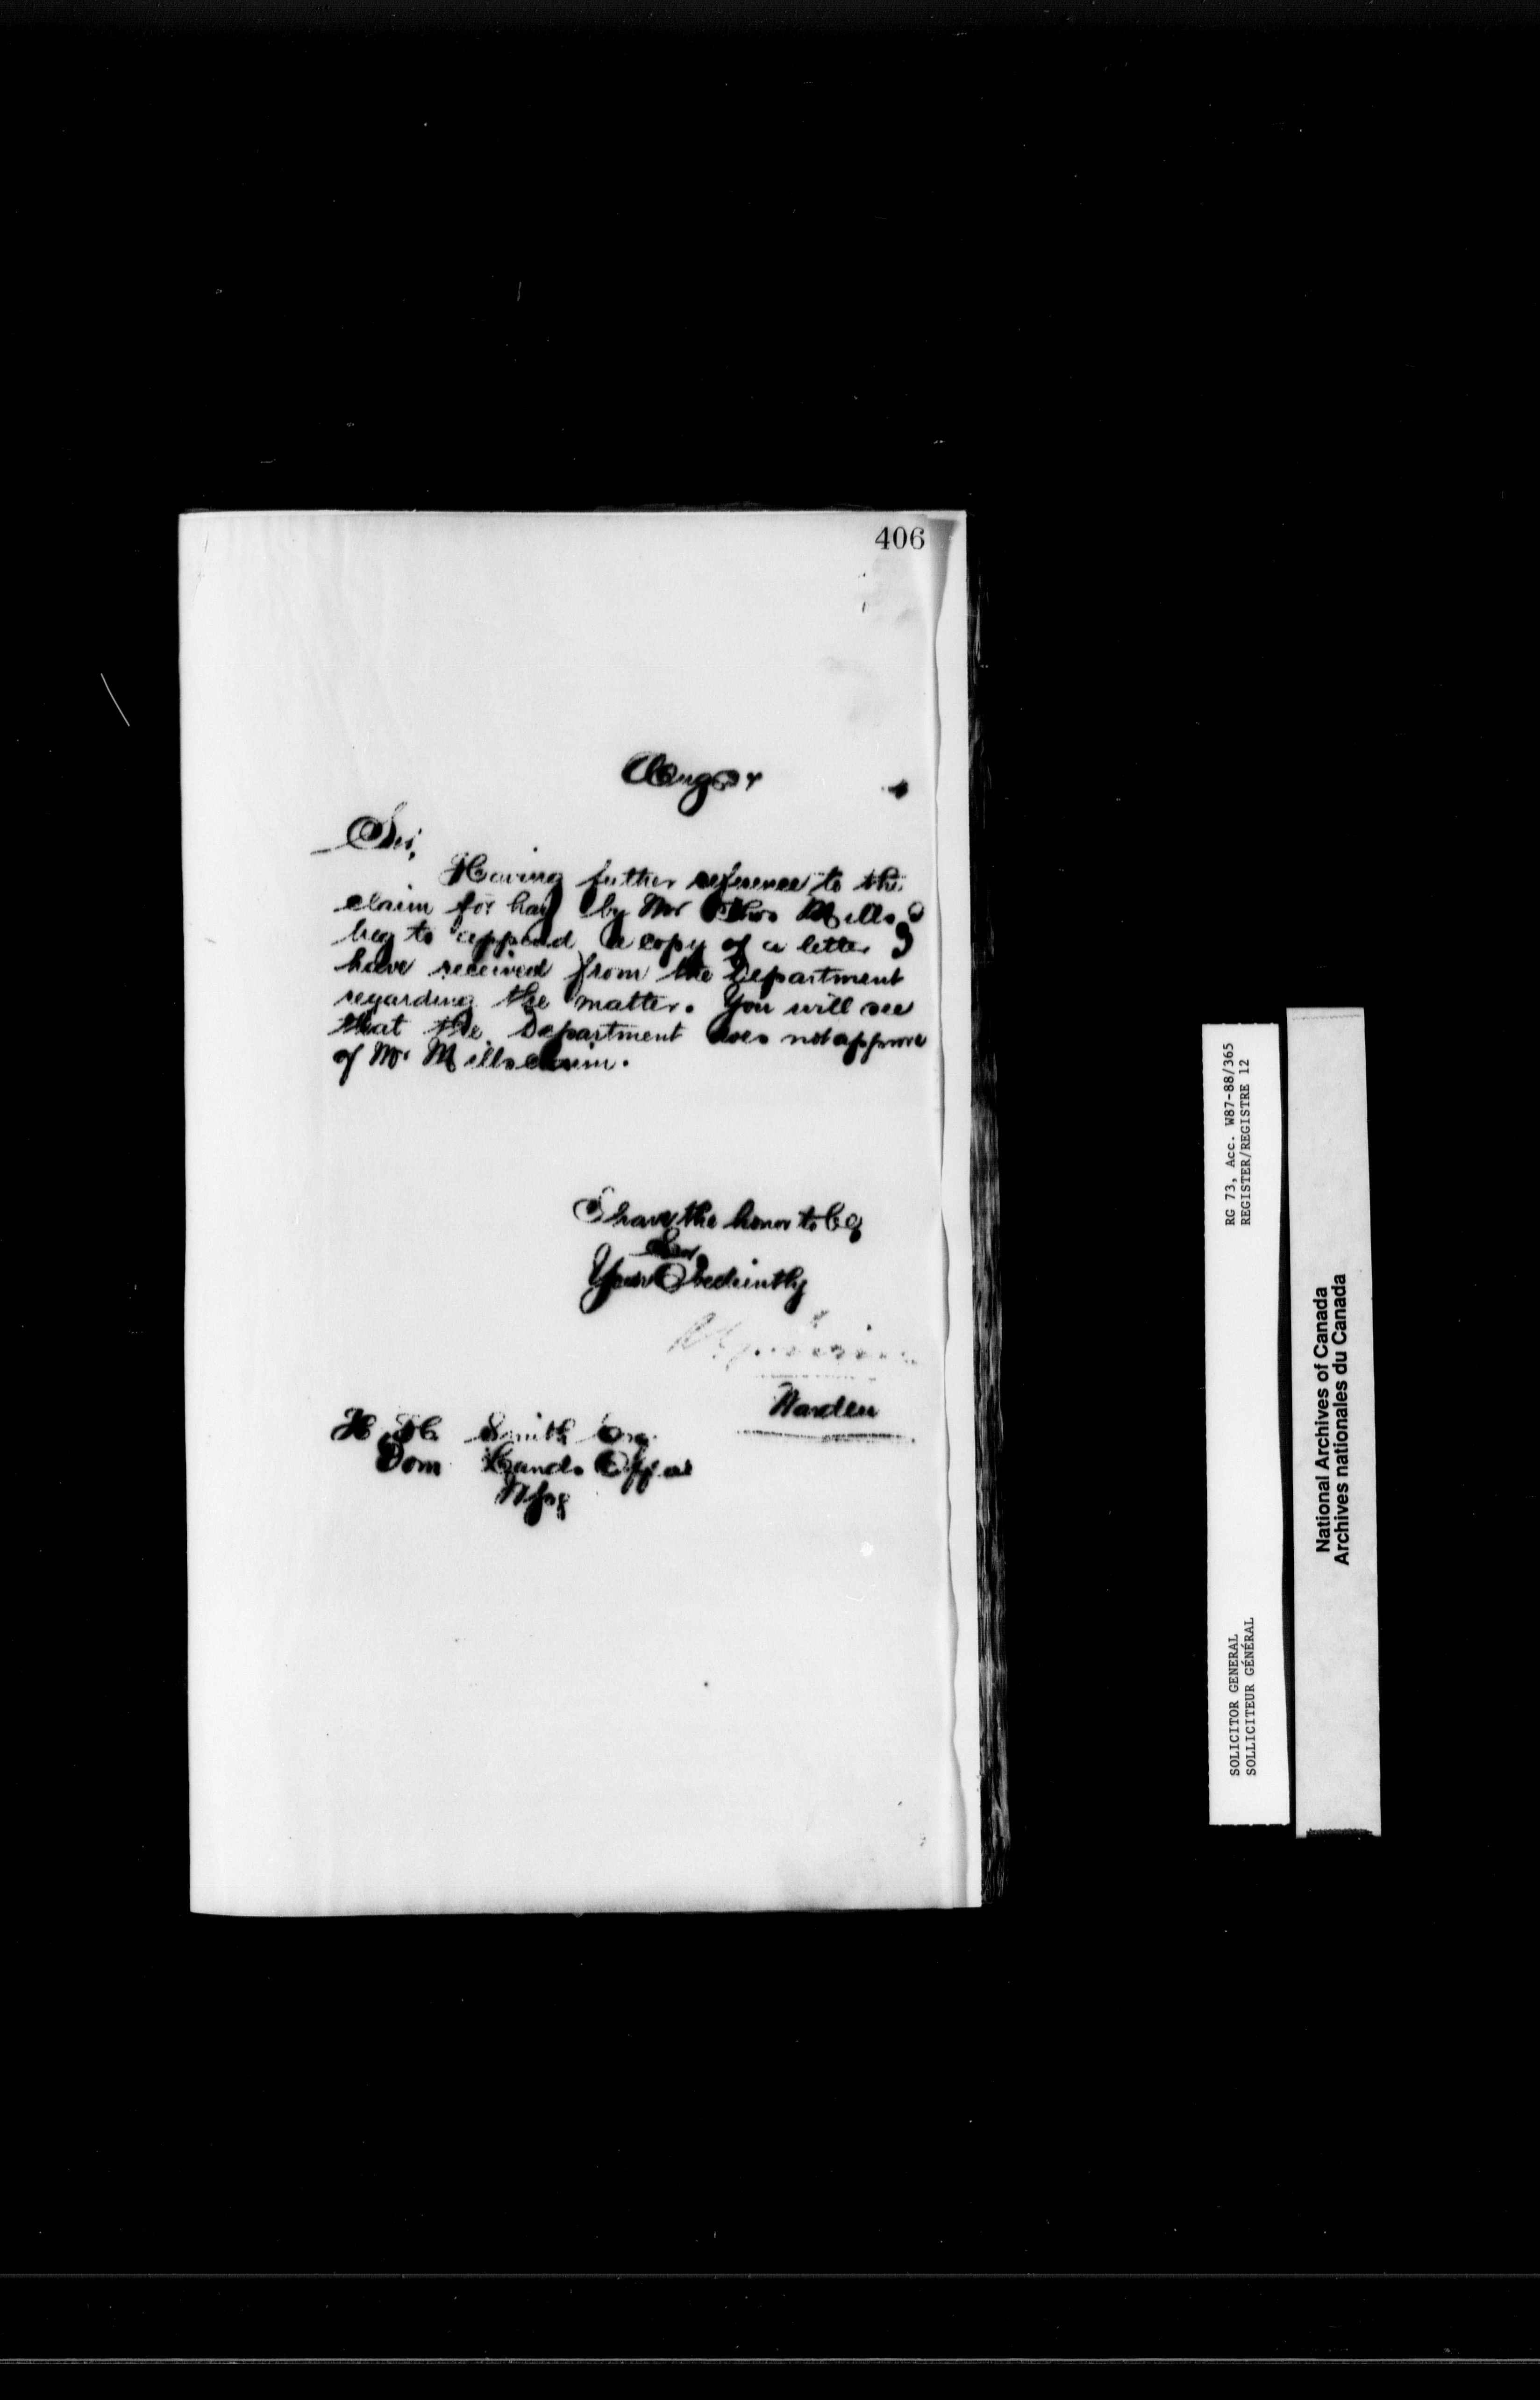 406
Aug
Sir,
Having futher reference to the
claim for hay by Mr Thos Mills I
beg to append a copy of a letter I
have received from the Department
regarding the matter. You will see
that the Department does not approve
of Mr Mills claim.
I have the honor to be
Sir
Your Obediently
Warden
H. H. Smith Esq.
Dom Lands Office
Wpg
RG 73, Acc. W87-88/365
REGISTER/REGISTRE 12
SOLICITOR GENERAL
SOLLICITEUR GÉNÉRAL
National Archives of Canada
Archives nationales du Canada